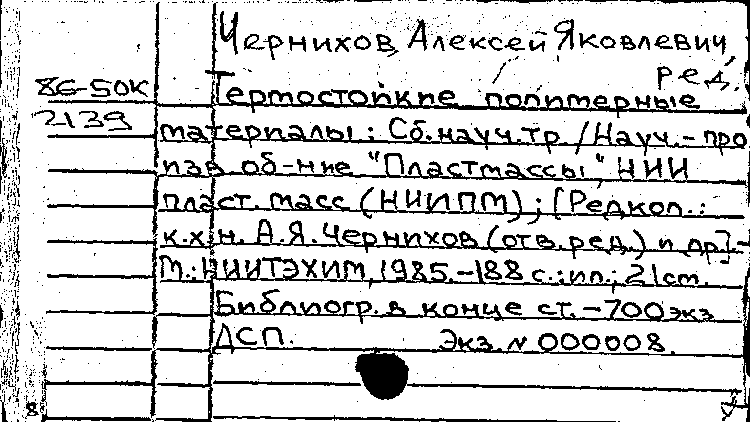 Чернихов, Алексей Яковлевич,
ред.
86-50К
2139
Термостойкие полимерные
материалы: Сб. науч. тр. / Науч.-про
изв об-ние "Пластмассы", НИИ
пласт. масс (НИИПМ); [Редкол.:
к.х.н. А.Я. Чернихов (отв. ред.) и др].-
М.: НИИТЭХИМ, 1985.-188 с.: ил.; 21 см.
Библиогр. в конце ст. - 700 экз
ДСП. Экз. N 000008.
8